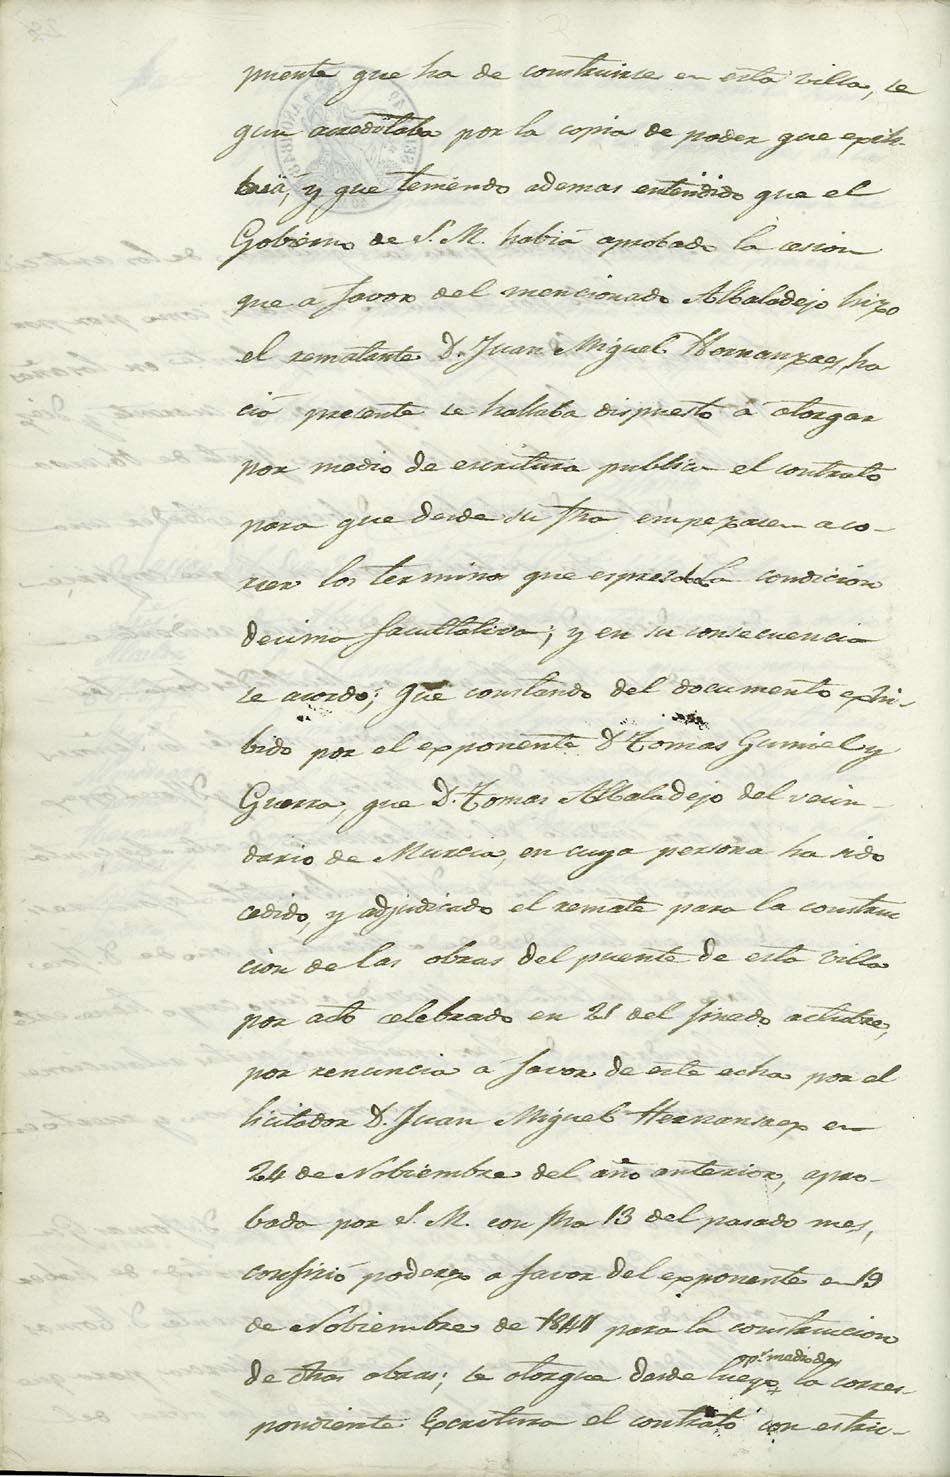 puente que ha de construirse en esta villa, se
gun acreditaba por la copia de poder que exih-
bia, y que teniendo ademas entendido que el
Gobierno de S. M. habia aprobado la cesion
que a favor del mencionado Albaladejo hizo
el rematante D. Juan Miguel Hernanzaez, ha
cia presente se hallaba dispuesto a otorgar
por medio de escritura publica el contrato
para que desde su fha empezasen a co-
rrer los terminos que espresaba la condicion
decima facultativa; y en su consecuencia
se acordo; que constando del documento exhi-
bido por el exponente D. Tomas Gumiel y
Guerra, que D. Tomas Albaladejo del vecin-
dario de Murcia, en cuya persona ha sido
cedido, y adjudicado el remate para la construc
cion de las obras del puente de esta villa
por acto celebrado en 21 del finado octubre,
por renuncia a favor de este echa por el
licitador D. Juan Miguel Hernansaez en
24 de Nobiembre del año anterior, apro-
bada por S. M. con fha 13 del pasado mes,
confirió poderes a favor del exponente en 19
de Nobiembre de 1841 para la construccion
pr. medio de
de dhas obras; se otorgue desde luego la corres-
pondiente Escritura el contrato con estric-